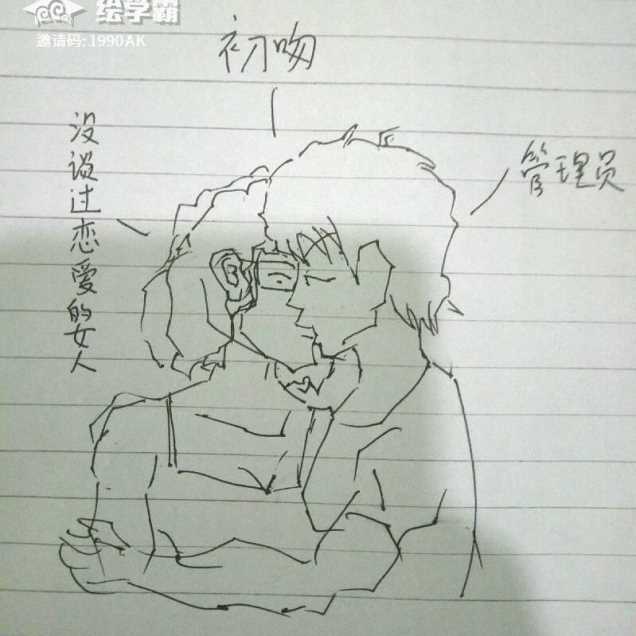 绘学霸
邀请码:1990AK
初吻
没谈过恋爱的女人
管理员